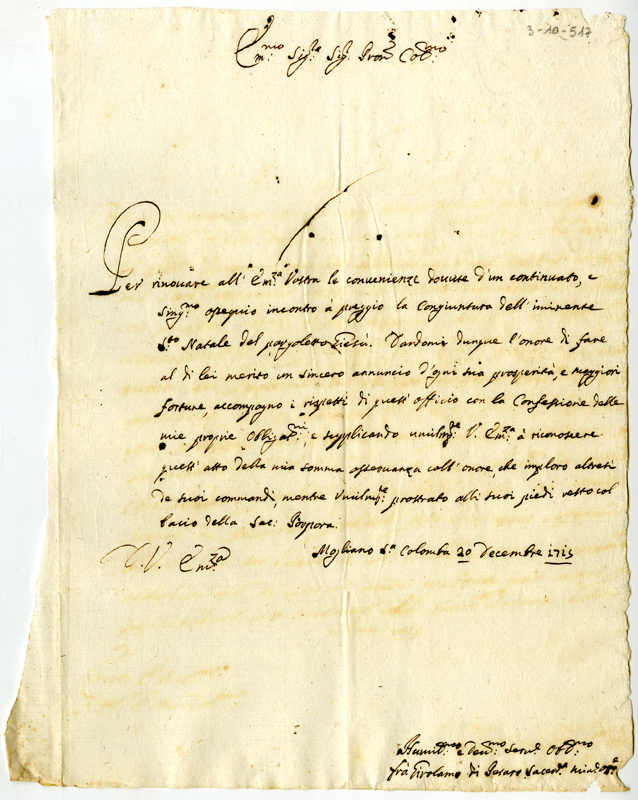 3-10-517
Em.mo Sig.re Sig.r Pron. Col.mo
Per rinovare all' Em.za Vostra le convenienze dovute d'un continuato, e
sing.mo ossequio incontro à preggio la Congiuntura dell' iminente
S.to Natale del pargoletto Giesù. Dandomi dunque l'onore di fare
al di lei merito un sincero annuncio d'ogni sua prosperità, e maggiori
fortune, accompagno i rispetti di quest' officio con la Confessione delle
mie proprie Obligat.ni, e supplicando umilm.te V. Em.za à riconoscere
quest' atto della mia somma osservanza coll' onore, che imploro altresi
de suoi commandi, mentre Umilm.te prostrato alli suoi piedi resto col
bacio della Sac: Porpora.
D. V. Em.za
Mogliano S.ta Colomba 20 Decembre 1715
Humil.mo e Dev.mo Serv.e Obl.mo
frà Girolamo di Pesaro Sacerd.e